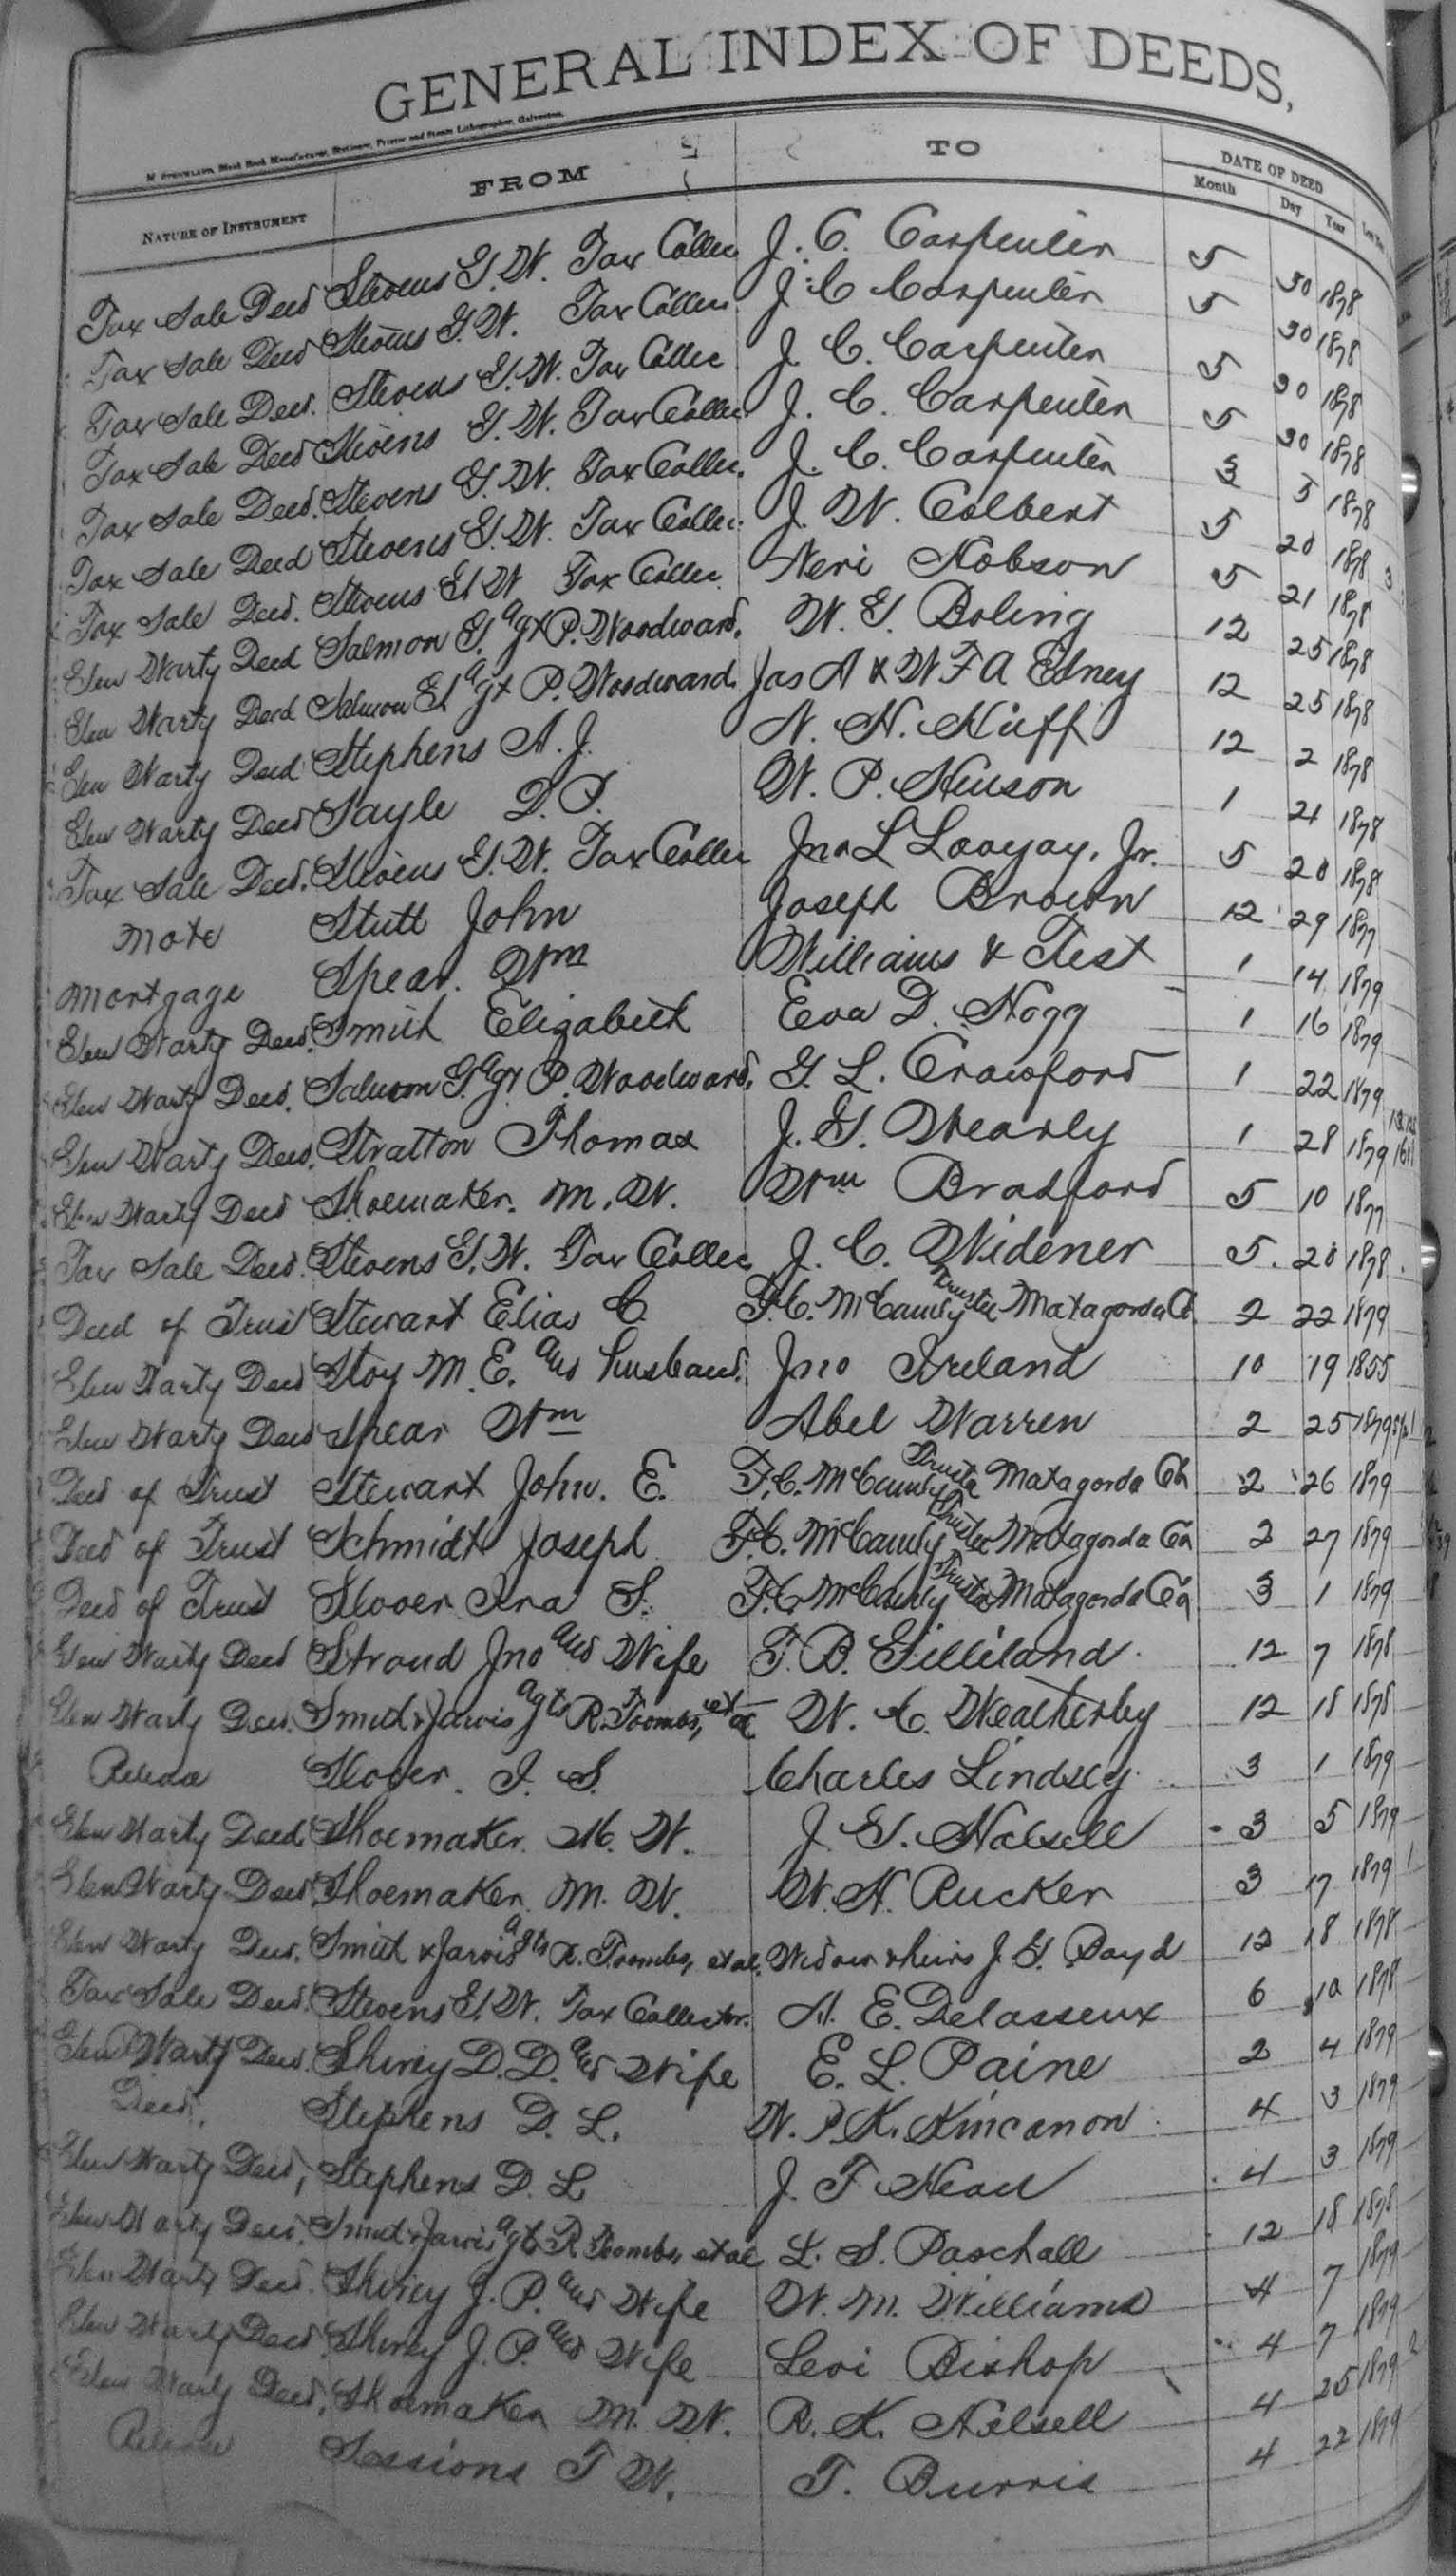 GENERAL INDEX OF DEEDS,
M. STRICKLAND, Blank Book Manufacturer, Stationer, Printer and Steam Lithographer, Galveston.
NATURE OF INSTRUMENT FROM TO DATE OF DEED
Month Day Year
Tax Sale Deed Stevens G. W. Tax Collec J. C. Carpenter 5 30 1878
Tax Sale Deed Stevens G. W. Tax Collec J. C Carpenter 5 30 1878
Tax Sale Deed. Stevens G. W. Tax Collec J. C. Carpenter 5 30 1878
Tax Sale Deed Stevens G. W. Tax Collec J. C. Carpenter 5 30 1878
Tax Sale Deed. Stevens G. W. Tax Collec. J. C. Carpenter 3 5 1878
Tax Sale Deed Stevens G. W. Tax Collec. J. W. Colbert 5 20 1878
Tax Sale Deed. Stevens G W Tax Collec Neri Hobson 5 21 1878
Gen Warty Deed Salmon G. agt P. Woodward. W. G. Boling 12 25 1878
Gen Warty Deed Salmon G. agt P. Woodward Jas A & W F A Edney 12 25 1878
Gen Warty Deed Stephens A. J. N. H. Huff 12 2 1878
Gen Warty Deed Sayle D. P. W. P. Henson 1 21 1878
Tax Sale Deed. Stevens G. W. Tax Collec Jno L Lovejoy, Jr. 5 20 1878
Note Stutt John Joseph Brown 12 29 1877
Mortgage Spear. Wm Williams & Test 1 14 1879
Gen Warty Deed. Smith Elizabeth Eva D. Hogg 1 16 1879
Gen Warty Deed. Salmon G. agt P. Woodward. G. L. Crawford 1 22 1879
Gen Warty Deed. Stratton Thomas J. G. Wearly 1 28 1879
Gen Warty Deed Shoemaker. M. W. Wm Bradford 5 10 1877
Tax Sale Deed. Stevens G. W. Tax Collec J. C. Widener 5. 20 1878
Deed of Trust Stewart Elias C. F. C. McCauly Trustee Matagorda Co 2 22 1879
Gen Warty Deed Stoy M. E. and husband. Jno Ireland 10 19 1855
Gen Warty Deed Spear Wm Abel Warren 2 25 1879
Deed of Trust Stewart John. E. F. C. McCauly Trustee Matagorda Co 2 26 1879
Deed of Trust Schmidt Joseph F. C. McCauly Trustee Matagorda Co 2 27 1879
Deed of Trust Slover Ira S. F. C. McCauly Trustee Matagorda Co 3 1 1879
Gen Warty Deed Stroud Jno and Wife T. B. Gilliland 12 7 1878
Gen Warty Deed. Smith & Jarvis agts R. Toombs, et al W. C. Weatherby 12 18 1878
Release Slover. I. S. Charles Lindsey 3 1 1879
Gen Warty Deed Shoemaker. M. W. J. G. Halsell 3 5 1879
Gen Warty Deed. Shoemaker. M. W. W. H. Rucker 3 17 1879
Gen Warty Deed. Smith & Jarvis agts R. Toombs, et al. Widow & heirs J. G. Boyd 12 18 1878
Tax Sale Deed. Stevens G. W. Tax Collector. A. E. Delasseux 6 10 1878
Gen Warty Deed. Shirey D. D. and Wife E. L. Paine 2 4 1879
Deed. Stephens D. L. W. P. K. Kincanon 4 3 1879
Gen Warty Deed, Stephens D. L J. T Head 4 3 1879
Gen Warty Deed. Smith & Jarvis agts R. Toombs, et al L. S. Paschall 12 18 1878
Gen Warty Deed. Shirey J. P. and Wife W. M. Williams 4 7 1879
Gen Warty Deed Shirey J. P. and Wife Levi Bishop 4 7 1879
Gen Warty Deed, Shoemaker M. W. R. K. Halsell 4 25 1879
Release Sessions T W. T. Burris 4 22 1879